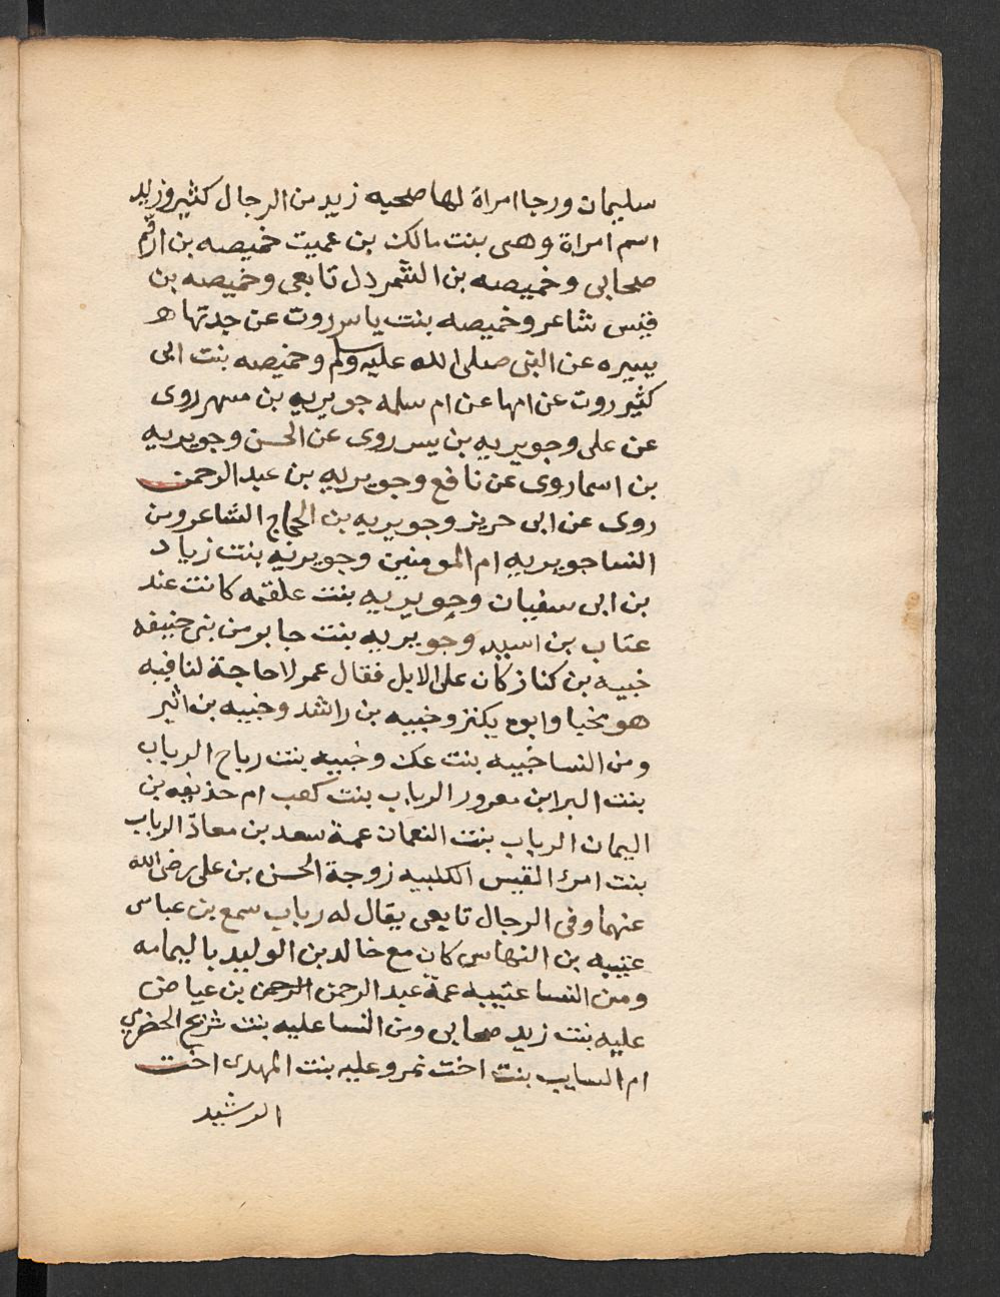 سليمان ورجا امراة لها صحبه زيد من الرجال كثير وزيد
اسم امراة وهى بنت مالك بن عميت خميصه بن ارقم
صحابى وخميصه بن الشمردل تابعى وخميصه بن
قيس شاعر وخميصه بنت ياسر روت عن جدتها
يسيره عن النبى صلى الله عليه وسلم وخميصه بنت ابى
كثير روت عن امها عن ام سلمه جويريه بن مسهر روى
عن على وجويريه بن بسر روى عن الحسن وجويريه
بن اسما روى عن نافع وجويريه بن عبد الرحمن
روى عن ابى حريز وجويريه بن الحجاج الشاعر ومن
النسا جويريه ام المومنين وجويريه بنت زياد
بن ابى سفيان وجويريه بنت علقمه كانت عند
عتاب بن اسيد وجويريه بنت جابر من بنى حنيفه
خبيه بن كناز كان على الابل فقال عمر لا حاجة لنا فيه
هو يخبا وابوه يكنز وخبيه بن راشد وخبيه بن اثير
ومن النسا خبيه بنت عك وخبيه بنت رباح الرباب
بنت البرا بن معرور الرباب بنت كعب ام حذيفه بن
اليمان الرباب بنت النعمان عمة سعد بن معاذ الرباب
بنت امرئ القيس الكلبيه زوجة الحسن بن على رضى الله
عنهما وفى الرجال تابعى يقال له رباب سمع بن عباس
عتيبه بن النهاس كان مع خالد بن الوليد باليمامه
ومن النسا عتيبه عمة عبد الرحمن الرحمن بن عياض
عليه بنت زيد صحابى ومن النسا عليه بنت شريح الحضرمى
ام السايب بنت اخت نمر وعليه بنت المهدى اخت
الرشيد